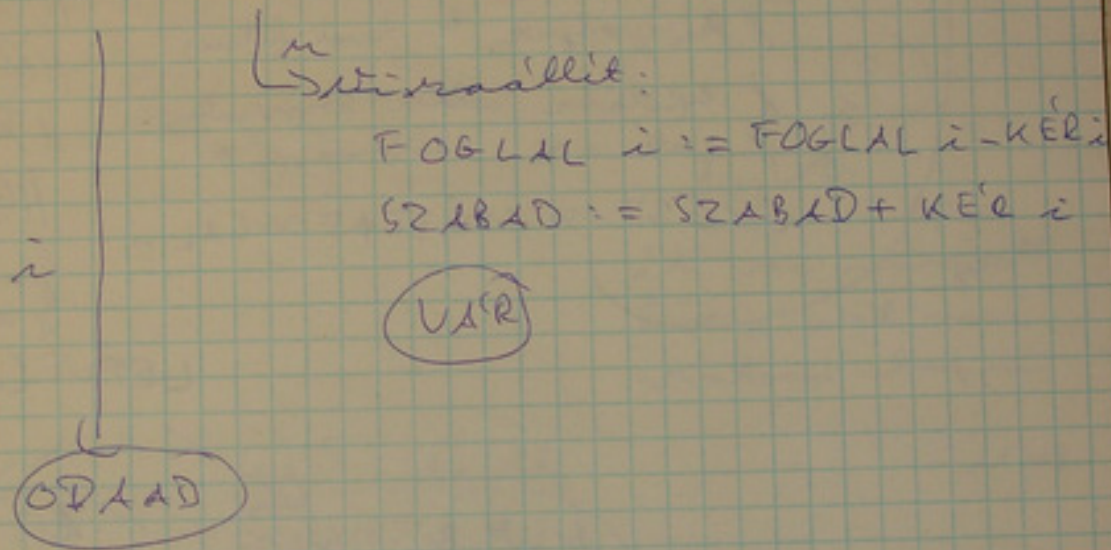 n
visszaállít:
FOGLAL i := FOGLAL i - KÉR i
SZABAD := SZABAD + KÉR i
i
VÁR
ODAAD